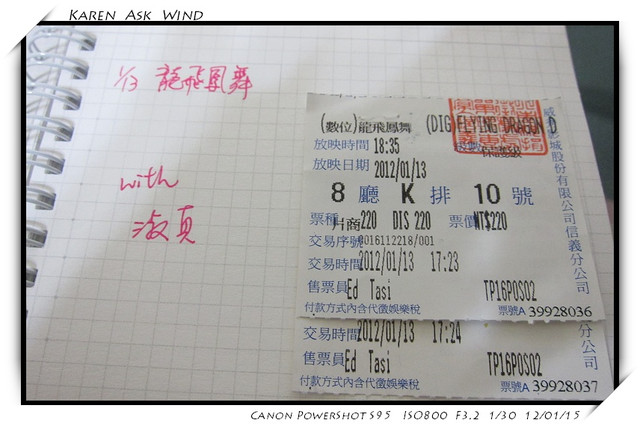 KAREN ASK WIND
1/13 龍飛鳳舞
with
淑真
(數位)龍飛鳳舞 (DIG)FLYING DRAGON D
放映時間 18:35 保護級
放映日期 2012/01/13
8 廳 K 排 10 號
票種 220 DIS 220 票價 NT$220
片商
交易序號 8016112218/001
交易時間 2012/01/13 17:23
售票員 Ed Tasi TP16POS02
付款方式內含代徵娛樂稅 票號A 39928036
威秀影城股份有限公司信義分公司
交易時間 2012/01/13 17:24
售票員 Ed Tasi TP16POS02
付款方式內含代徵娛樂稅 票號A 39928037
分公司
CANON POWERSHOT S95 ISO800 F3.2 1/30 12/01/15